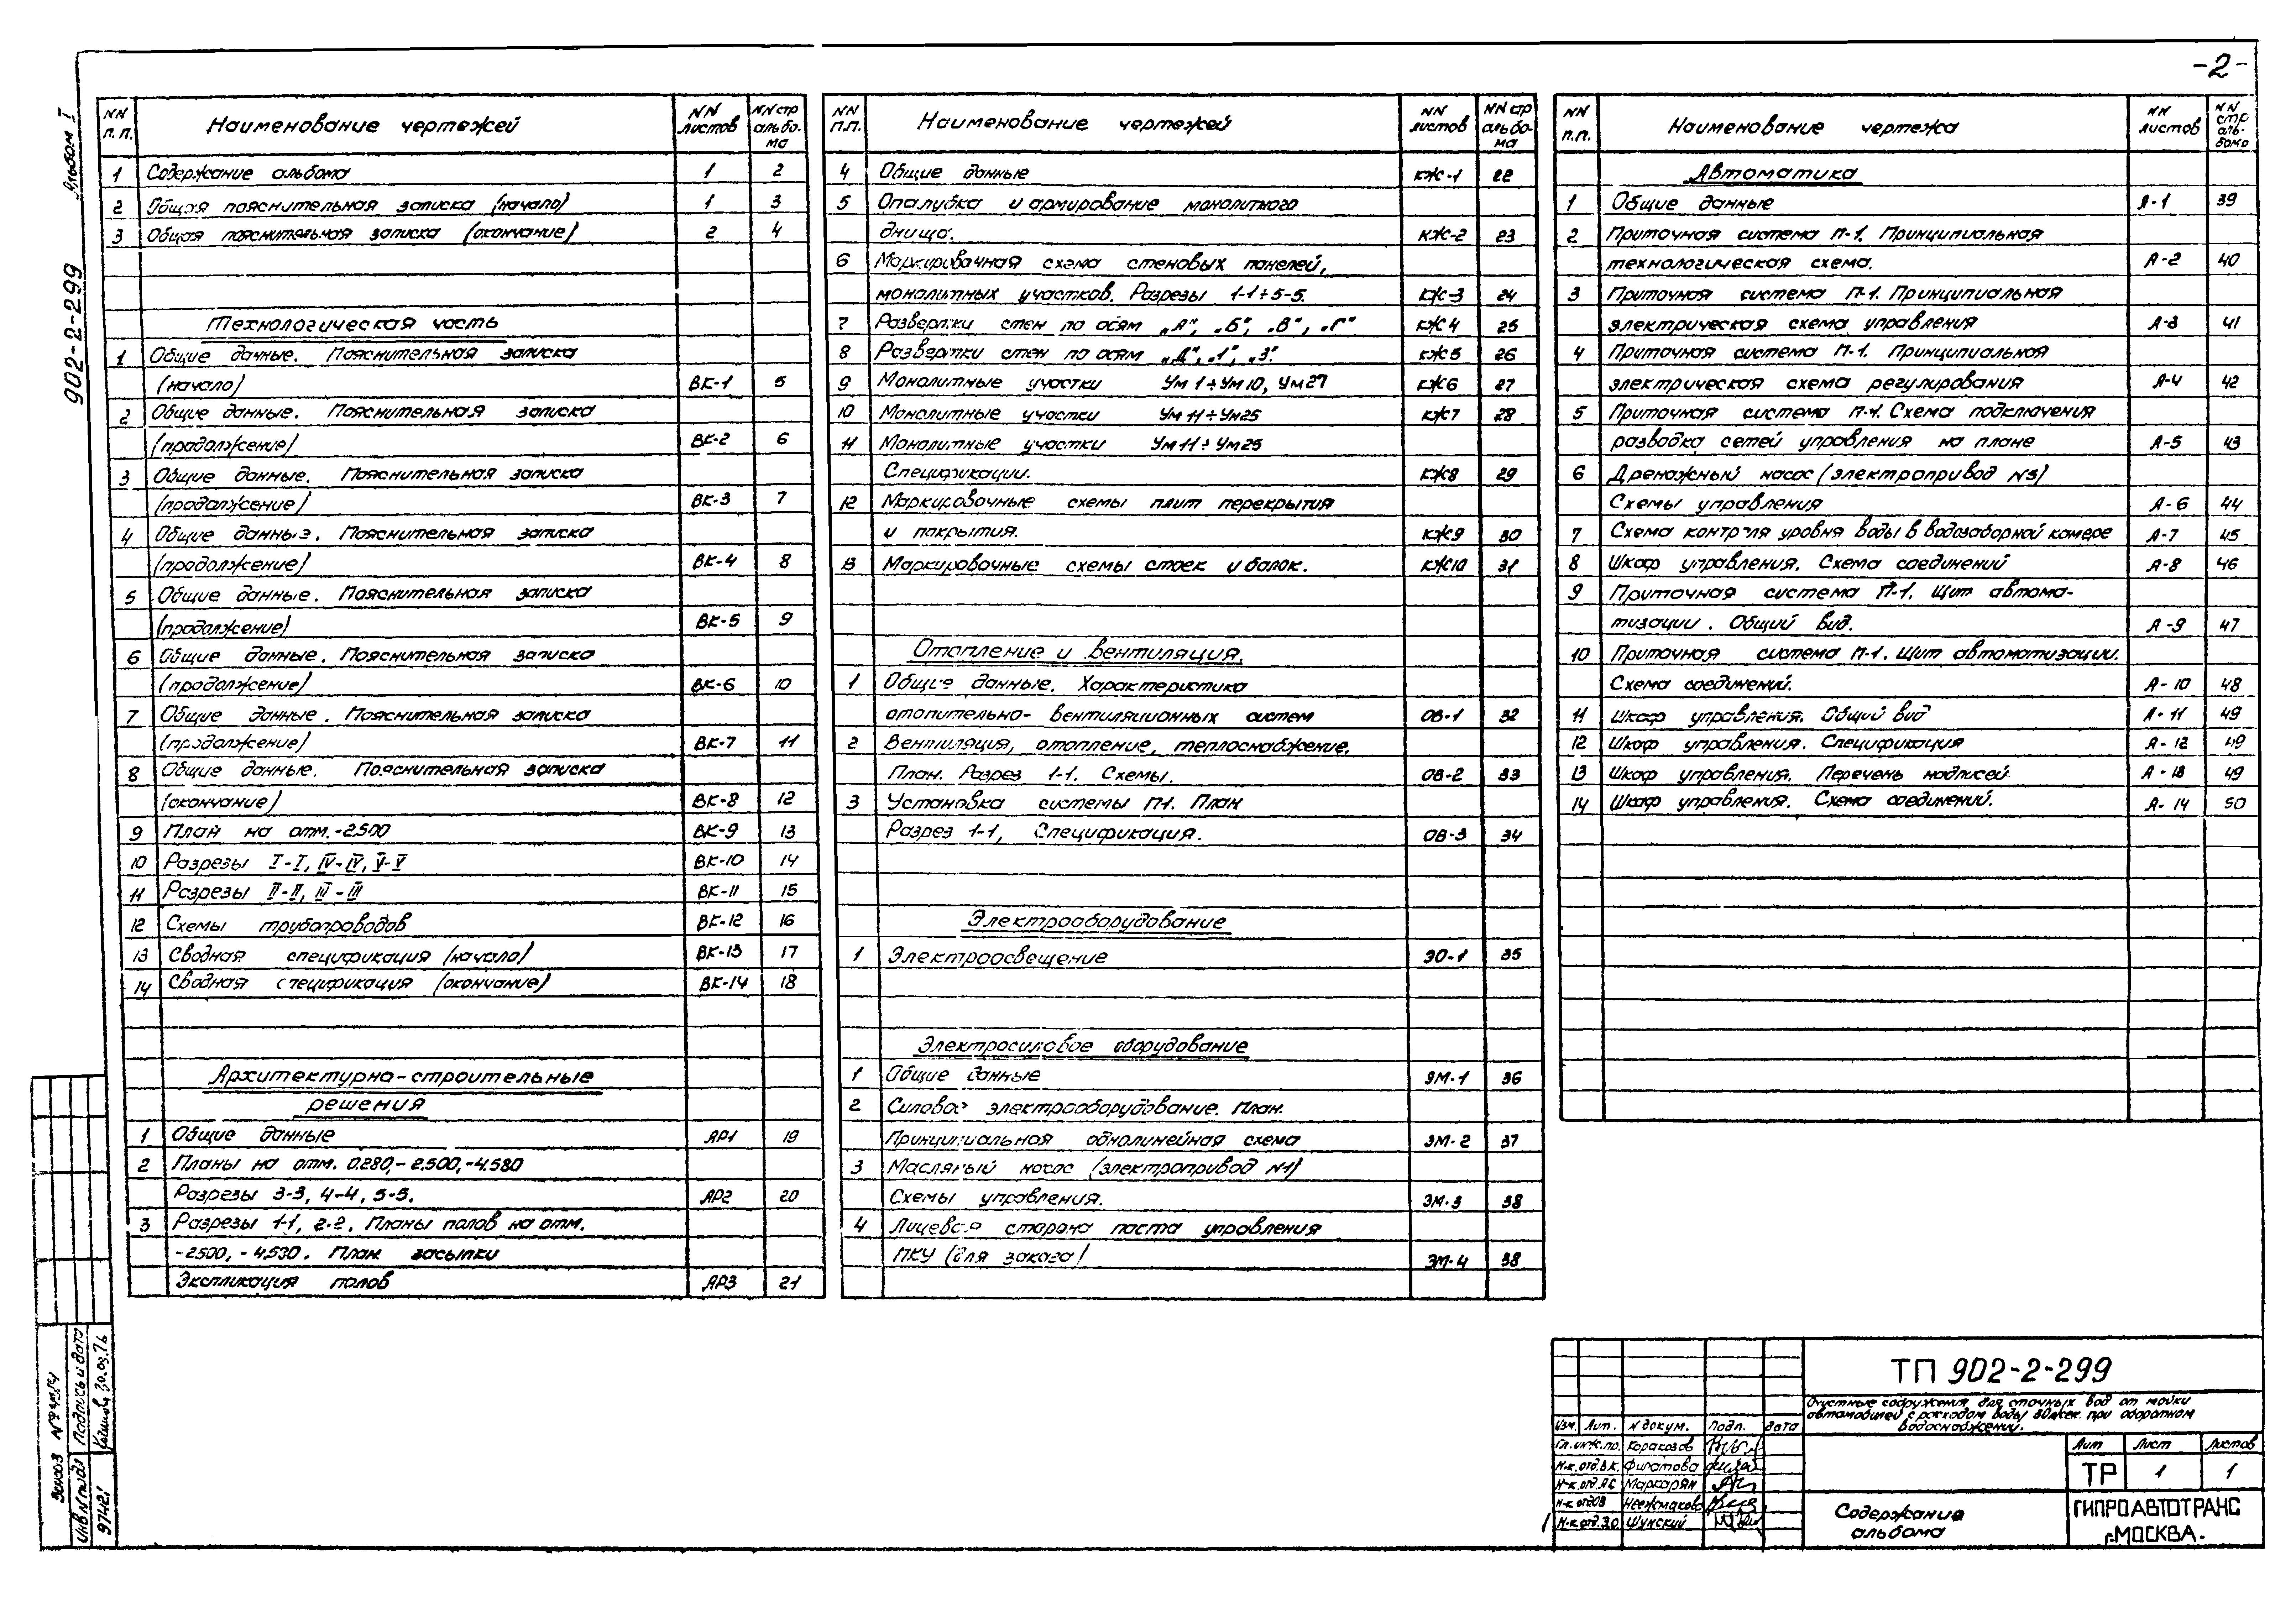 -2-
Альбом I
902-2-299
NN п.п. Наименование чертежей NN листов NN стр альбо-ма
1 Содержание альбома 1 2
2 Общая пояснительная записка (начало) 1 3
3 Общая пояснительная записка (окончание) 2 4
Технологическая часть
1 Общие данные. Пояснительная записка
(начало) ВК-1 5
2 Общие данные. Пояснительная записка
(продолжение) ВК-2 6
3 Общие данные. Пояснительная записка
(продолжение) ВК-3 7
4 Общие данные. Пояснительная записка
(продолжение) ВК-4 8
5 Общие данные. Пояснительная записка
(продолжение) ВК-5 9
6 Общие данные. Пояснительная записка
(продолжение) ВК-6 10
7 Общие данные. Пояснительная записка
(продолжение) ВК-7 11
8 Общие данные. Пояснительная записка
(окончание) ВК-8 12
9 План на отм.-2.500 ВК-9 13
10 Разрезы I-I, IV-IV, V-V ВК-10 14
11 Разрезы II-II, III-III ВК-11 15
12 Схемы трубопроводов ВК-12 16
13 Сводная спецификация (начало) ВК-13 17
14 Сводная спецификация (окончание) ВК-14 18
Архитектурно-строительные
решения
1 Общие данные АР1 19
2 Планы на отм. 0.280,-2.500,-4.580
Разрезы 3-3, 4-4, 5-5. АР2 20
3 Разрезы 1-1, 2-2. Планы полов на отм.
-2.500, -4.530. План засыпки
Экспликация полов АР3 21
NN п.п. Наименование чертежей NN листов NN стр альбо-ма
4 Общие данные КЖ-1 22
5 Опалубка и армирование монолитного
днища. КЖ-2 23
6 Маркировачная схема стеновых панелей,
монолитных участков. Разрезы 1-1÷5-5. КЖ-3 24
7 Развертки стен по осям „А", „Б", „В", „Г" КЖ4 25
8 Развертки стен по осям „Д", „1", „3". КЖ5 26
9 Монолитные участки Ум1÷Ум10, Ум27 КЖ6 27
10 Монолитные участки Ум11÷Ум25 КЖ7 28
11 Монолитные участки Ум11÷Ум25
Спецификации. КЖ8 29
12 Маркировочные схемы плит перекрытия
и покрытия. КЖ9 30
13 Маркировочные схемы стоек и балок. КЖ10 31
Отопление и вентиляция.
1 Общие данные. Характеристика
отопительно-вентиляционных систем ОВ-1 32
2 Вентиляция, отопление, теплоснабжение.
План. Разрез 1-1. Схемы. ОВ-2 33
3 Установка системы П1. План
Разрез 1-1, Спецификация. ОВ-3 34
Электрооборудование
1 Электроосвещение ЭО-1 35
Электросиловое оборудование
1 Общие данные ЭМ-1 36
2 Силовое электрооборудование. План.
Принципиальная однолинейная схема ЭМ-2 37
3 Масляный насос (электропривод N1)
Схемы управления. ЭМ-3 38
4 Лицевая сторона поста управления
ПКУ (для заказа) ЭМ-4 38
NN п.п. Наименование чертежа NN листов NN стр аль-бома
Автоматика
1 Общие данные А-1 39
2 Приточная система П-1. Принципиальная
технологическая схема. А-2 40
3 Приточная система П-1. Принципиальная
электрическая схема управления А-3 41
4 Приточная система П-1. Принципиальная
электрическая схема регулирования А-4 42
5 Приточная система П-1. Схема подключения
разводка сетей управления на плане А-5 43
6 Дренажный насос (электропривод N5)
Схемы управления А-6 44
7 Схема контроля уровня воды в водозаборной камере А-7 45
8 Шкаф управления. Схема соединений А-8 46
9 Приточная система П-1. Щит автома-
тизации. Общий вид. А-9 47
10 Приточная система П-1. Щит автоматизации.
Схема соединений. А-10 48
11 Шкаф управления. Общий вид А-11 49
12 Шкаф управления. Спецификация А-12 49
13 Шкаф управления. Перечень надписей А-13 49
14 Шкаф управления. Схема соединений. А-14 50
ТП 902-2-299
Очистные сооружения для сточных вод от мойки
автомобилей с расходом воды 30л/сек. при оборотном
водоснабжении.
Изм. Лит. N докум. Подп. Дата
Гл.инж.пр. Каракозов
Н-к.отд.ВК. Филатова
Н-к.отд.АС Маркарян
Н-к отдОВ Неежмаков
Н-к отд.ЭО Шумский
Лит Лист Листов
ТР 1 1
Содержание
альбома
ГИПРОАВТОТРАНС
г.МОСКВА.
Инв.N подл Подпись и дата
97421